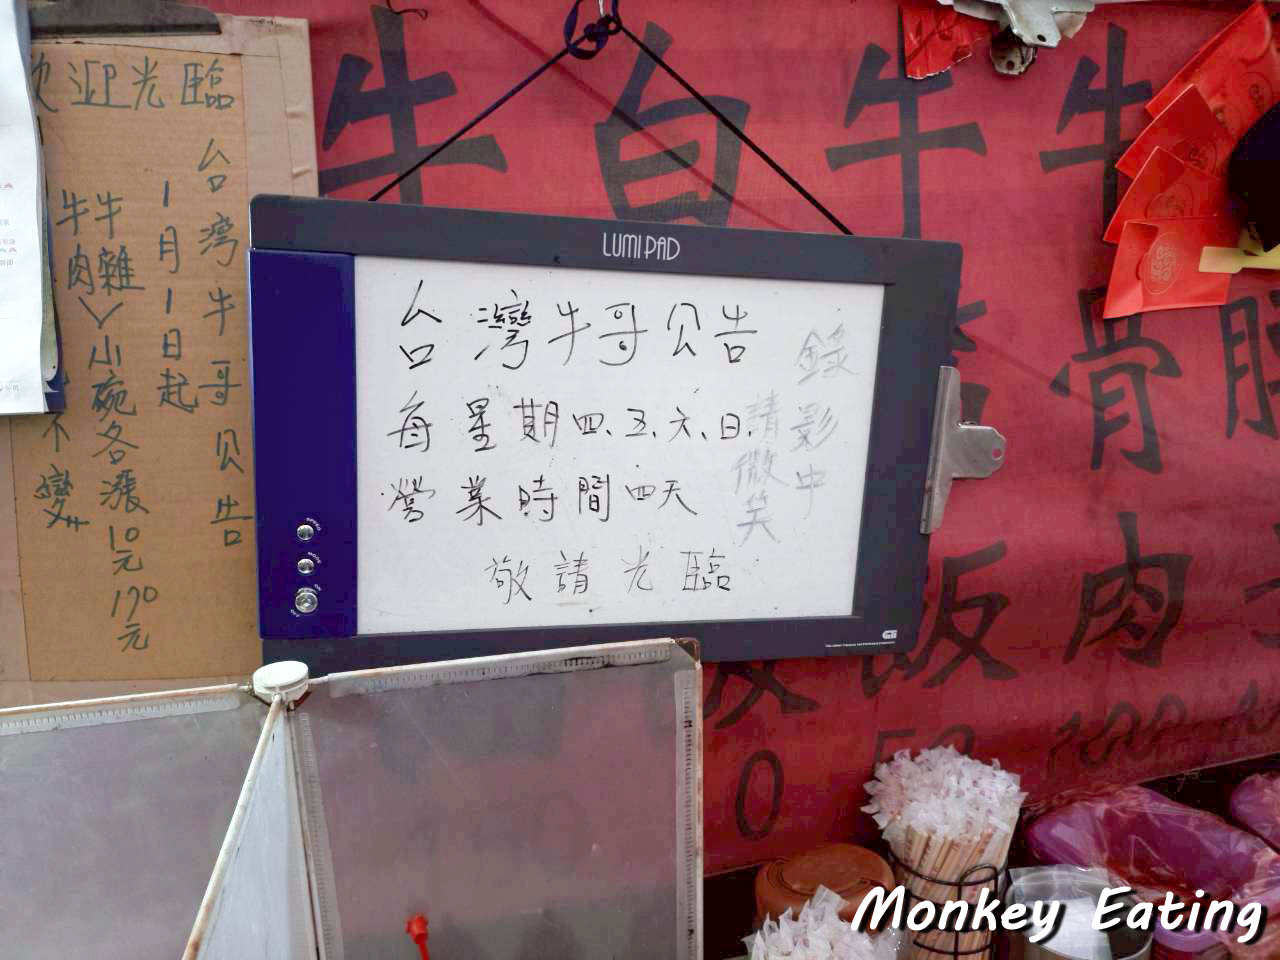 歡迎光臨
台灣牛哥公告
1月1日起
牛雜、小碗各漲10元 170元
牛肉
不變
LUMIPAD
台灣牛哥公告
每星期四、五、六、日、
營業時間四天
敬請光臨
錄影中
請微笑
牛 白 牛 牛
骨
飯 肉
0
100
Monkey Eating